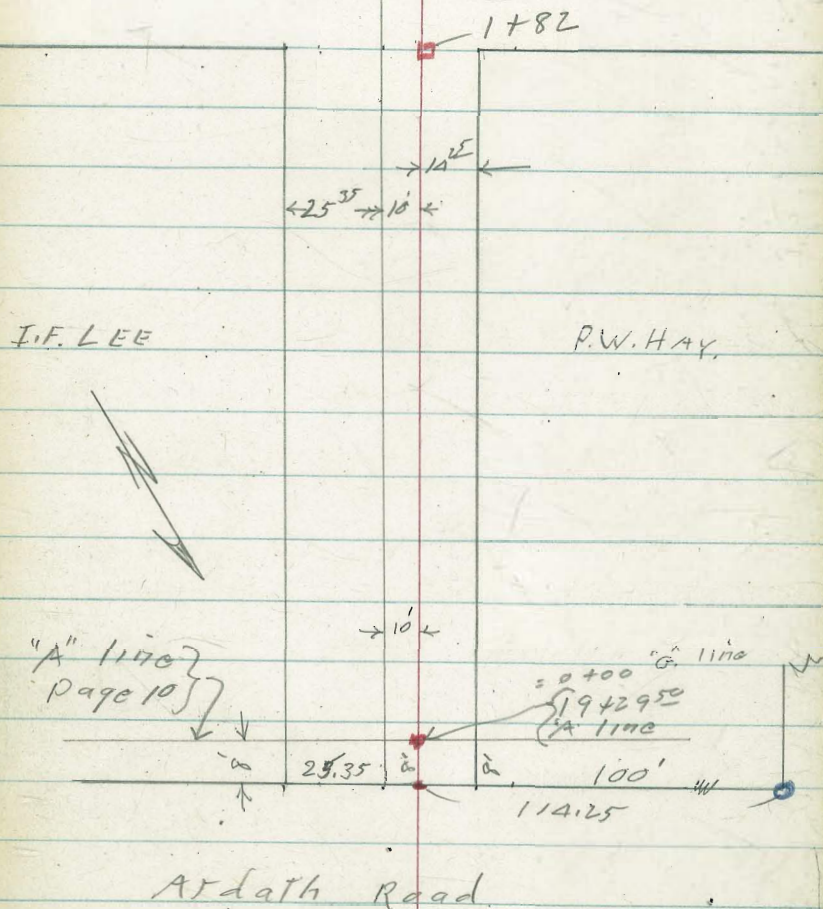 1+82
14 25
25 35 10'
I.F. LEE
P.W. HAY.
N
10'
"A" line
Page 10
"G" line
= 0+00
19+29 50
"A" line
8'
25.35
8'
8'
100'
114.25
Ardath Road